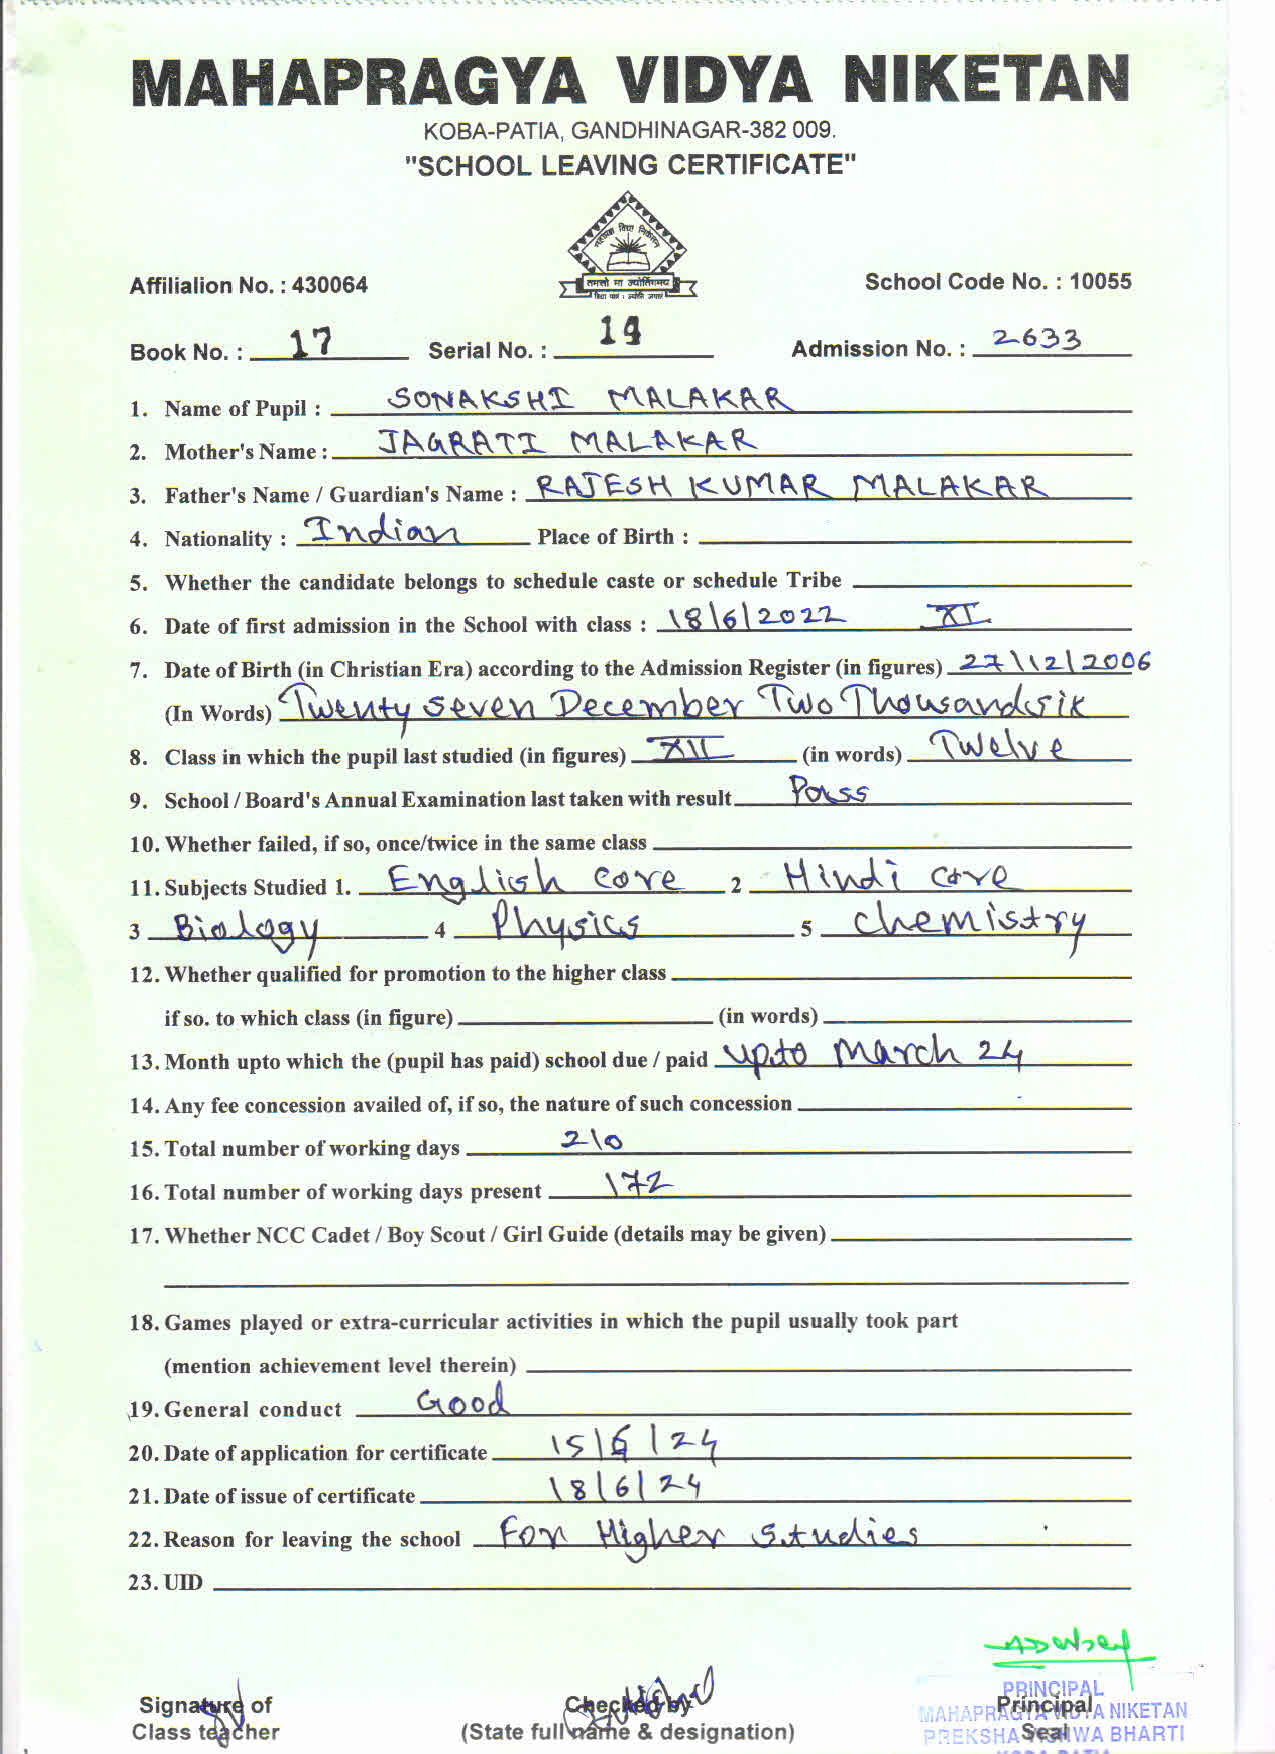 MAHAPRAGYA VIDYA NIKETAN
KOBA-PATIA, GANDHINAGAR-382 009.
"SCHOOL LEAVING CERTIFICATE"
महाप्रज्ञ विद्या निकेतन
तमसो मा ज्योतिर्गमय
Affilialion No. : 430064 School Code No. : 10055
Book No. : 17 Serial No. : 14 Admission No. : 2633
1. Name of Pupil : SONAKSHI MALAKAR
2. Mother's Name : JAGRATI MALAKAR
3. Father's Name / Guardian's Name : RAJESH KUMAR MALAKAR
4. Nationality : Indian Place of Birth :
5. Whether the candidate belongs to schedule caste or schedule Tribe
6. Date of first admission in the School with class : 18/6/2022 XI
7. Date of Birth (in Christian Era) according to the Admission Register (in figures) 27/12/2006
(In Words) Twenty seven December Two Thousandsik
8. Class in which the pupil last studied (in figures) XII (in words) Twelve
9. School / Board's Annual Examination last taken with result Pass
10. Whether failed, if so, once/twice in the same class
11. Subjects Studied 1. English core 2 Hindi core
3 Biology 4 Physics 5 chemistry
12. Whether qualified for promotion to the higher class
if so. to which class (in figure) (in words)
13. Month upto which the (pupil has paid) school due / paid upto March 24
14. Any fee concession availed of, if so, the nature of such concession
15. Total number of working days 210
16. Total number of working days present 172
17. Whether NCC Cadet / Boy Scout / Girl Guide (details may be given)
18. Games played or extra-curricular activities in which the pupil usually took part
(mention achievement level therein)
19. General conduct Good
20. Date of application for certificate 15/6/24
21. Date of issue of certificate 18/6/24
22. Reason for leaving the school For Higher Studies
23. UID
Signature of Checked by Principal
Class teacher (State full name & designation) Seal
PRINCIPAL
MAHAPRAGYA VIDYA NIKETAN
PREKSHA VISHWA BHARTI
KOBA PATIA